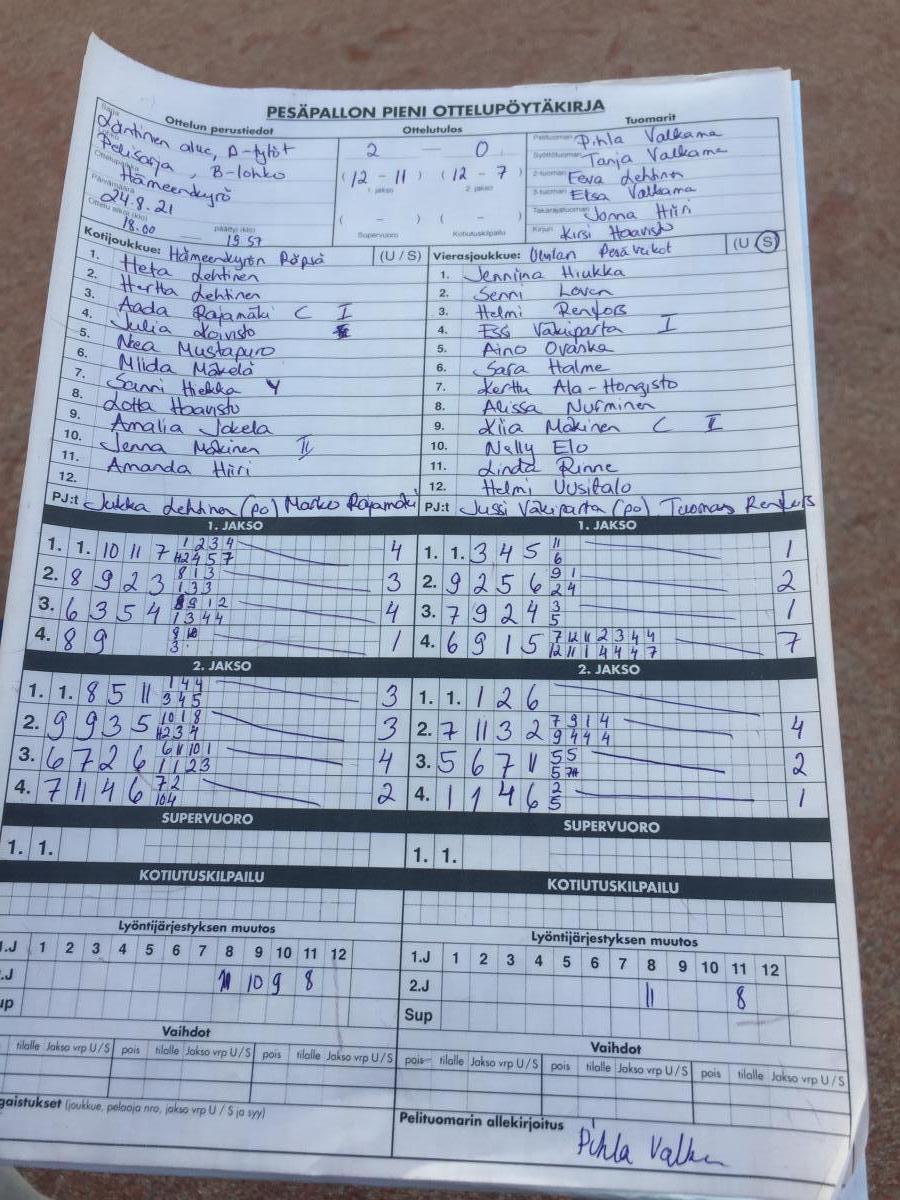 PESÄPALLON PIENI OTTELUPÖYTÄKIRJA
Ottelun perustiedot
Ottelutulos
Tuomarit
Sarja
Läntinen alue, D-tytöt
Pelisarja, B-lohko
Ottelupaikka
Hämeenkyrö
Päivämäärä
24.8.21
Ottelu alkoi (klo) 18.00
päättyi (klo) 19.57
2 — 0
(12 – 11) (12 – 7)
1. jakso 2. jakso
( – ) ( – )
Supervuoro Kotiutuskilpailu
Pelituomari Pihla Valkama
Syöttötuomari Tanja Valkama
2-tuomari Eeva Lehtinen
3-tuomari Elsa Valkama
Takarajatuomari Jonna Hiiri
Kirjuri Kirsi Haavisto
Kotijoukkue: Hämeenkyrön Pöpsä (U / S)
1. Heta Lehtinen
2. Hertta Lehtinen
3. Aada Rajamäki C I
4. Julia Koivisto
5. Neea Mustapuro
6. Miida Mäkelä
7. Sanni Hiekka Y
8. Lotta Haavisto
9. Amalia Jokela
10. Jenna Mäkinen II
11. Amanda Hiiri
12.
PJ:t Jukka Lehtinen (po) Marko Rajamäki
Vierasjoukkue: Ulvilan Pesä-Veikot (U / S)
1. Jenniina Hiukka
2. Senni Loven
3. Helmi Renfors
4. Essi Vakiparta I
5. Aino Ovaska
6. Sara Halme
7. Kerttu Ala-Hongisto
8. Alissa Nurminen
9. Kiia Mäkinen C II
10. Nelly Elo
11. Linda Rinne
12. Helmi Uusitalo
PJ:t Jussi Vakiparta (po) Tuomas Renfors
1. JAKSO
1. 1. 10 11 7 1 2 3 4 4
2. 8 9 2 3 8 1 3 1 3 3 3
3. 6 3 5 4 1 3 4 4 4
4. 8 9 1
1. JAKSO
1. 1. 3 4 5 11 6 1
2. 9 2 5 6 9 1 2 4 2
3. 7 9 2 4 3 5 1
4. 6 9 1 5 7 12 11 2 3 4 4 12 11 1 4 4 4 7 7
2. JAKSO
1. 1. 8 5 11 1 4 4 3 4 5 3
2. 9 9 3 5 10 1 8 3
3. 6 7 2 6 6 11 10 1 1 1 2 3 4
4. 7 11 4 6 7 2 10 4 2
2. JAKSO
1. 1. 1 2 6
2. 7 11 3 2 7 9 1 4 9 4 4 4 4
3. 5 6 7 11 5 5 2
4. 1 1 4 6 2 5 1
SUPERVUORO
1. 1.
SUPERVUORO
1. 1.
KOTIUTUSKILPAILU
KOTIUTUSKILPAILU
Lyöntijärjestyksen muutos
.J 1 2 3 4 5 6 7 8 9 10 11 12
.J 11 10 9 8
up
Lyöntijärjestyksen muutos
1.J 1 2 3 4 5 6 7 8 9 10 11 12
2.J 11 8
Sup
Vaihdot
tilalle Jakso vrp U / S pois tilalle Jakso vrp U / S pois tilalle Jakso vrp U / S
Vaihdot
pois tilalle Jakso vrp U / S pois tilalle Jakso vrp U / S pois tilalle Jakso vrp U / S
gaistukset (joukkue, pelaaja nro, jakso vrp U / S ja syy)
Pelituomarin allekirjoitus
Pihla Valkama